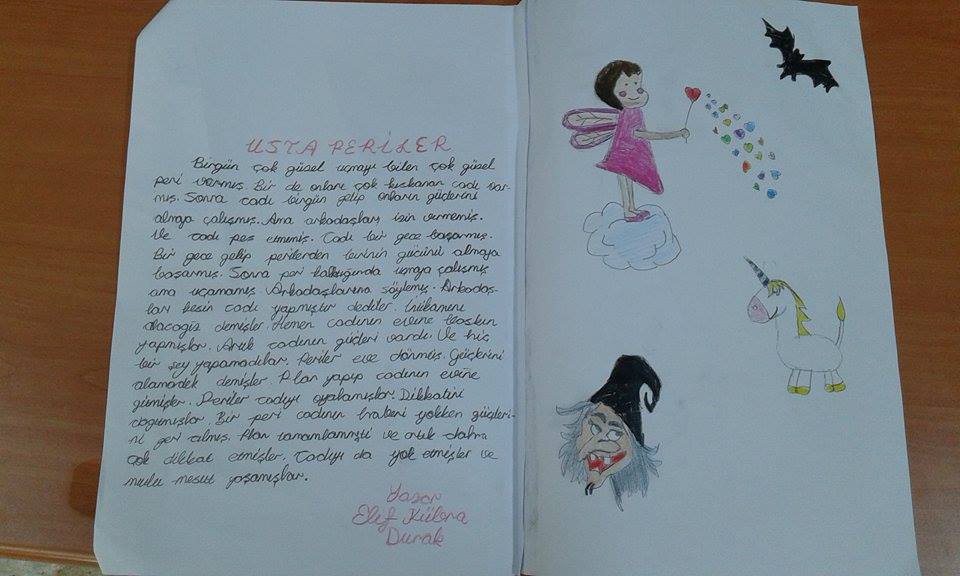 USTA PERİLER
Birgün çok güzel uçmayı bilen çok güzel
peri varmış. Bir de onları çok kıskanan cadı var-
mış. Sonra cadı birgün gelip onların güçlerini
almaya çalışmış. Ama arkadaşları izin vermemiş.
Ve cadı pes etmemiş. Cadı bir gece başarmış.
Bir gece gelip perilerden birinin gücünü almaya
başarmış. Sonra peri kalktığında uçmaya çalışmış
ama uçamamış. Arkadaşlarına söylemiş. Arkadaş-
ları kesin cadı yapmıştır dediler. İntikamını
alacağız demişler. Hemen cadının evine baskın
yapmışlar. Artık cadının güçleri vardı. Ve hiç
bir şey yapamadılar. Periler eve dönmüş. Güçlerini
alamadık demişler. Plan yapıp cadının evine
girmişler. Periler cadıyı oyalamışlar. Dikkatini
dağıtmışlar. Bir peri cadının haberi yokken güçleri-
ni geri almış. Plan tamamlanmıştı ve artık daha
çok dikkat etmişler. Cadıyı da yok etmişler ve
mutlu mesut yaşamışlar.
Yazar
Elif Kübra
Durak